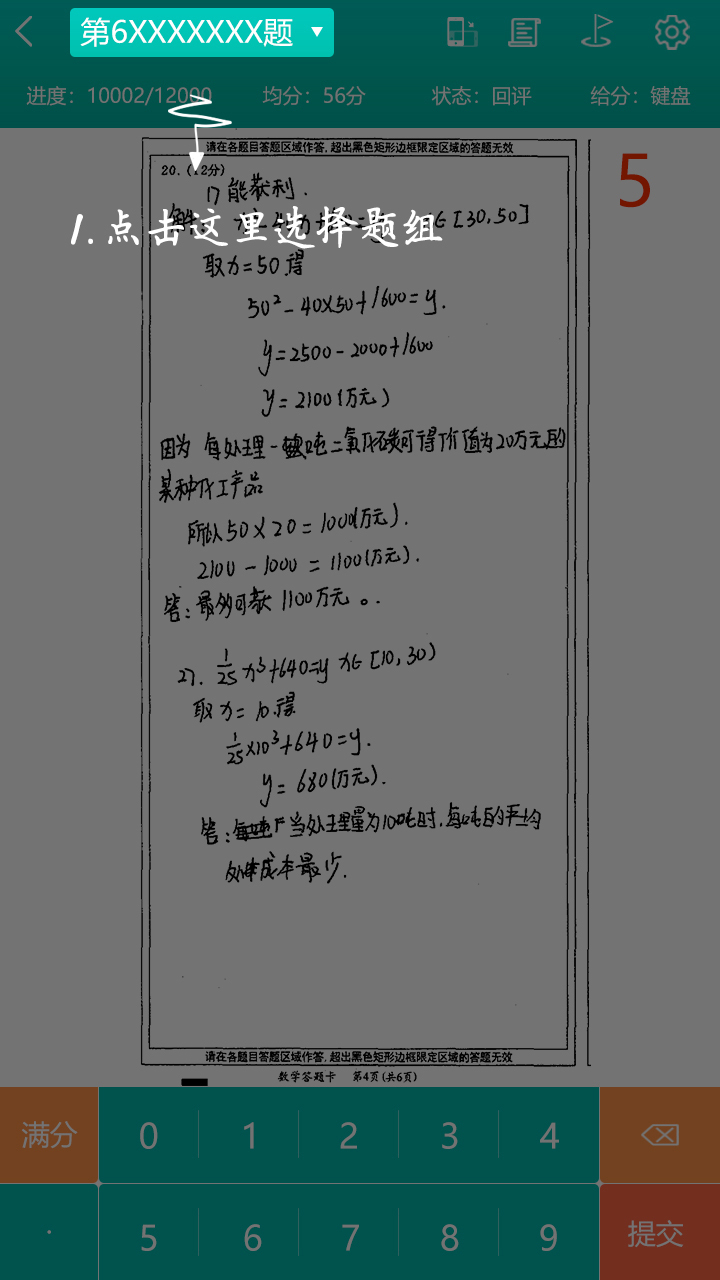 第6XXXXXXX题
进度：10002/12000 均分：56分 状态：回评 给分：键盘
请在各题目答题区域作答，超出黑色矩形边框限定区域的答题无效
5
20．（12分）
1) 能获利．
1.点击这里选择题组
∈[30,50]
取x=50得
50²-40×50+1600=y.
y=2500-2000+1600
y=2100(万元)
因为 每处理一吨二氧化碳可得价值为20万元的
某种化工产品
所以50×20=1000(万元).
2100-1000=1100(万元).
答：最多可获1100万元。.
2). 1/25 x³+640=y x∈[10,30)
取x=10.得
1/25×10³+640=y.
y=680(万元).
答：当处理量为10吨时,每吨的平均
成本最少.
请在各题目答题区域作答，超出黑色矩形边框限定区域的答题无效
数学答题卡 第4页(共6页)
满分 0 1 2 3 4
· 5 6 7 8 9 提交